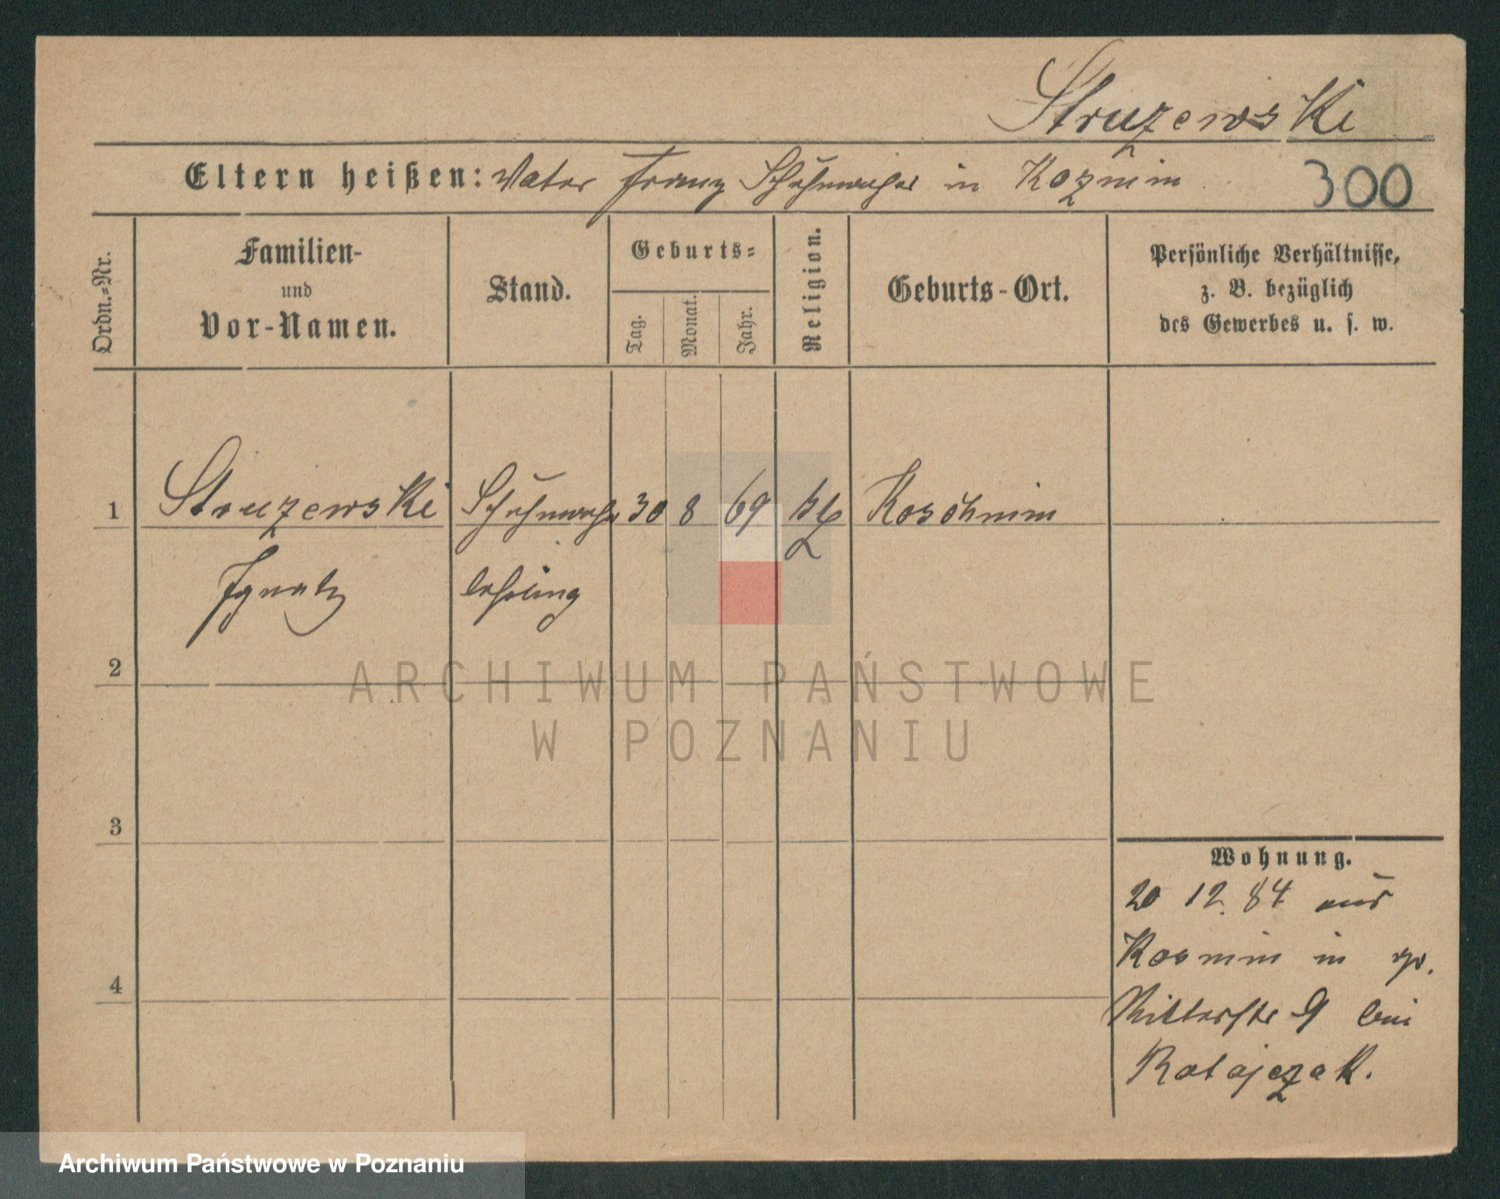 Struzewski
Eltern heißen: Vater Franz Schuhmacher in Kozmin
300
Ordn.-Nr.
Familien-
und
Vor-Namen.
Stand.
Geburts-
Tag.
Monat.
Jahr.
Religion.
Geburts-Ort.
Persönliche Verhältnisse,
z. B. bezüglich
des Gewerbes u. s. w.
1 Struzewski Schuhmacher 30 8 69 kth Koschmin
Ignatz lehrling
2
3
4
Wohnung.
20 12. 84 aus
Kosmin in gr.
Ritterstr 9 bei
Ratajczak.
ARCHIWUM PAŃSTWOWE
W POZNANIU
Archiwum Państwowe w Poznaniu